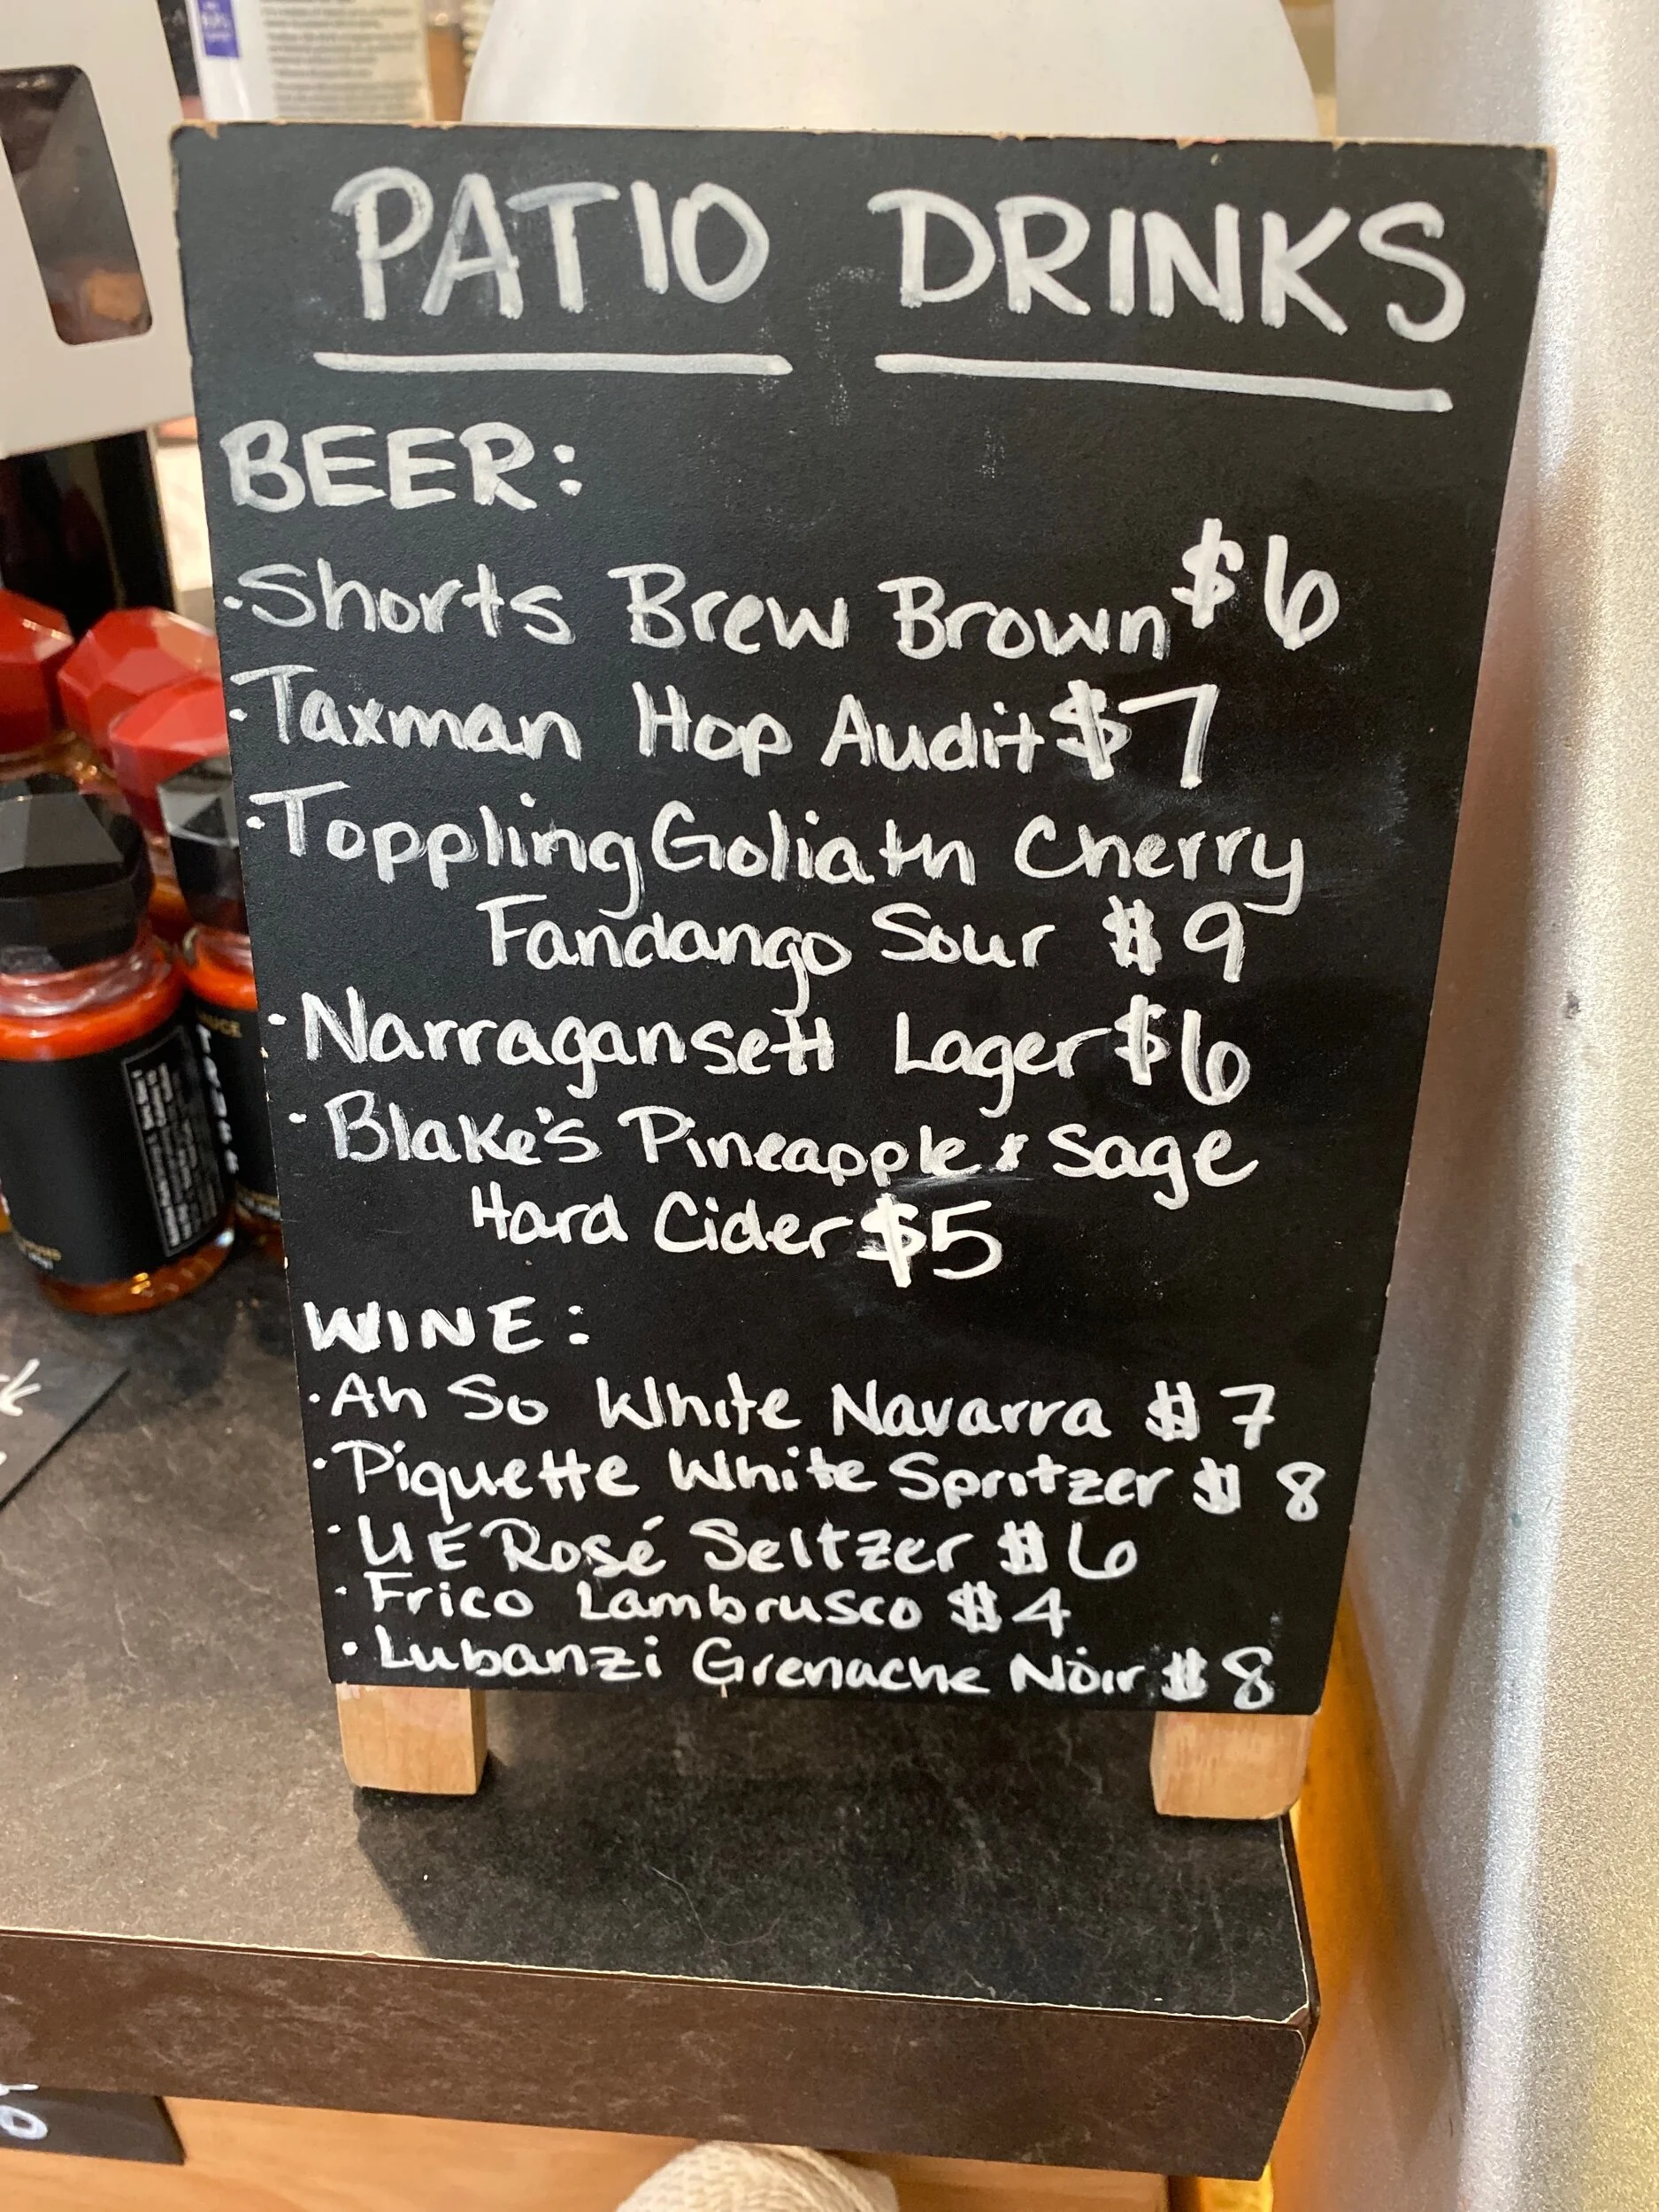 PATIO DRINKS
BEER:
·Shorts Brew Brown $6
·Taxman Hop Audit $7
·Toppling Goliath Cherry
Fandango Sour $9
·Narragansett Lager $6
·Blake's Pineapple & Sage
Hard Cider $5
WINE:
·Ah So White Navarra $7
·Piquette White Spritzer $8
·UE Rosé Seltzer $6
·Frico Lambrusco $4
·Lubanzi Grenache Noir $8